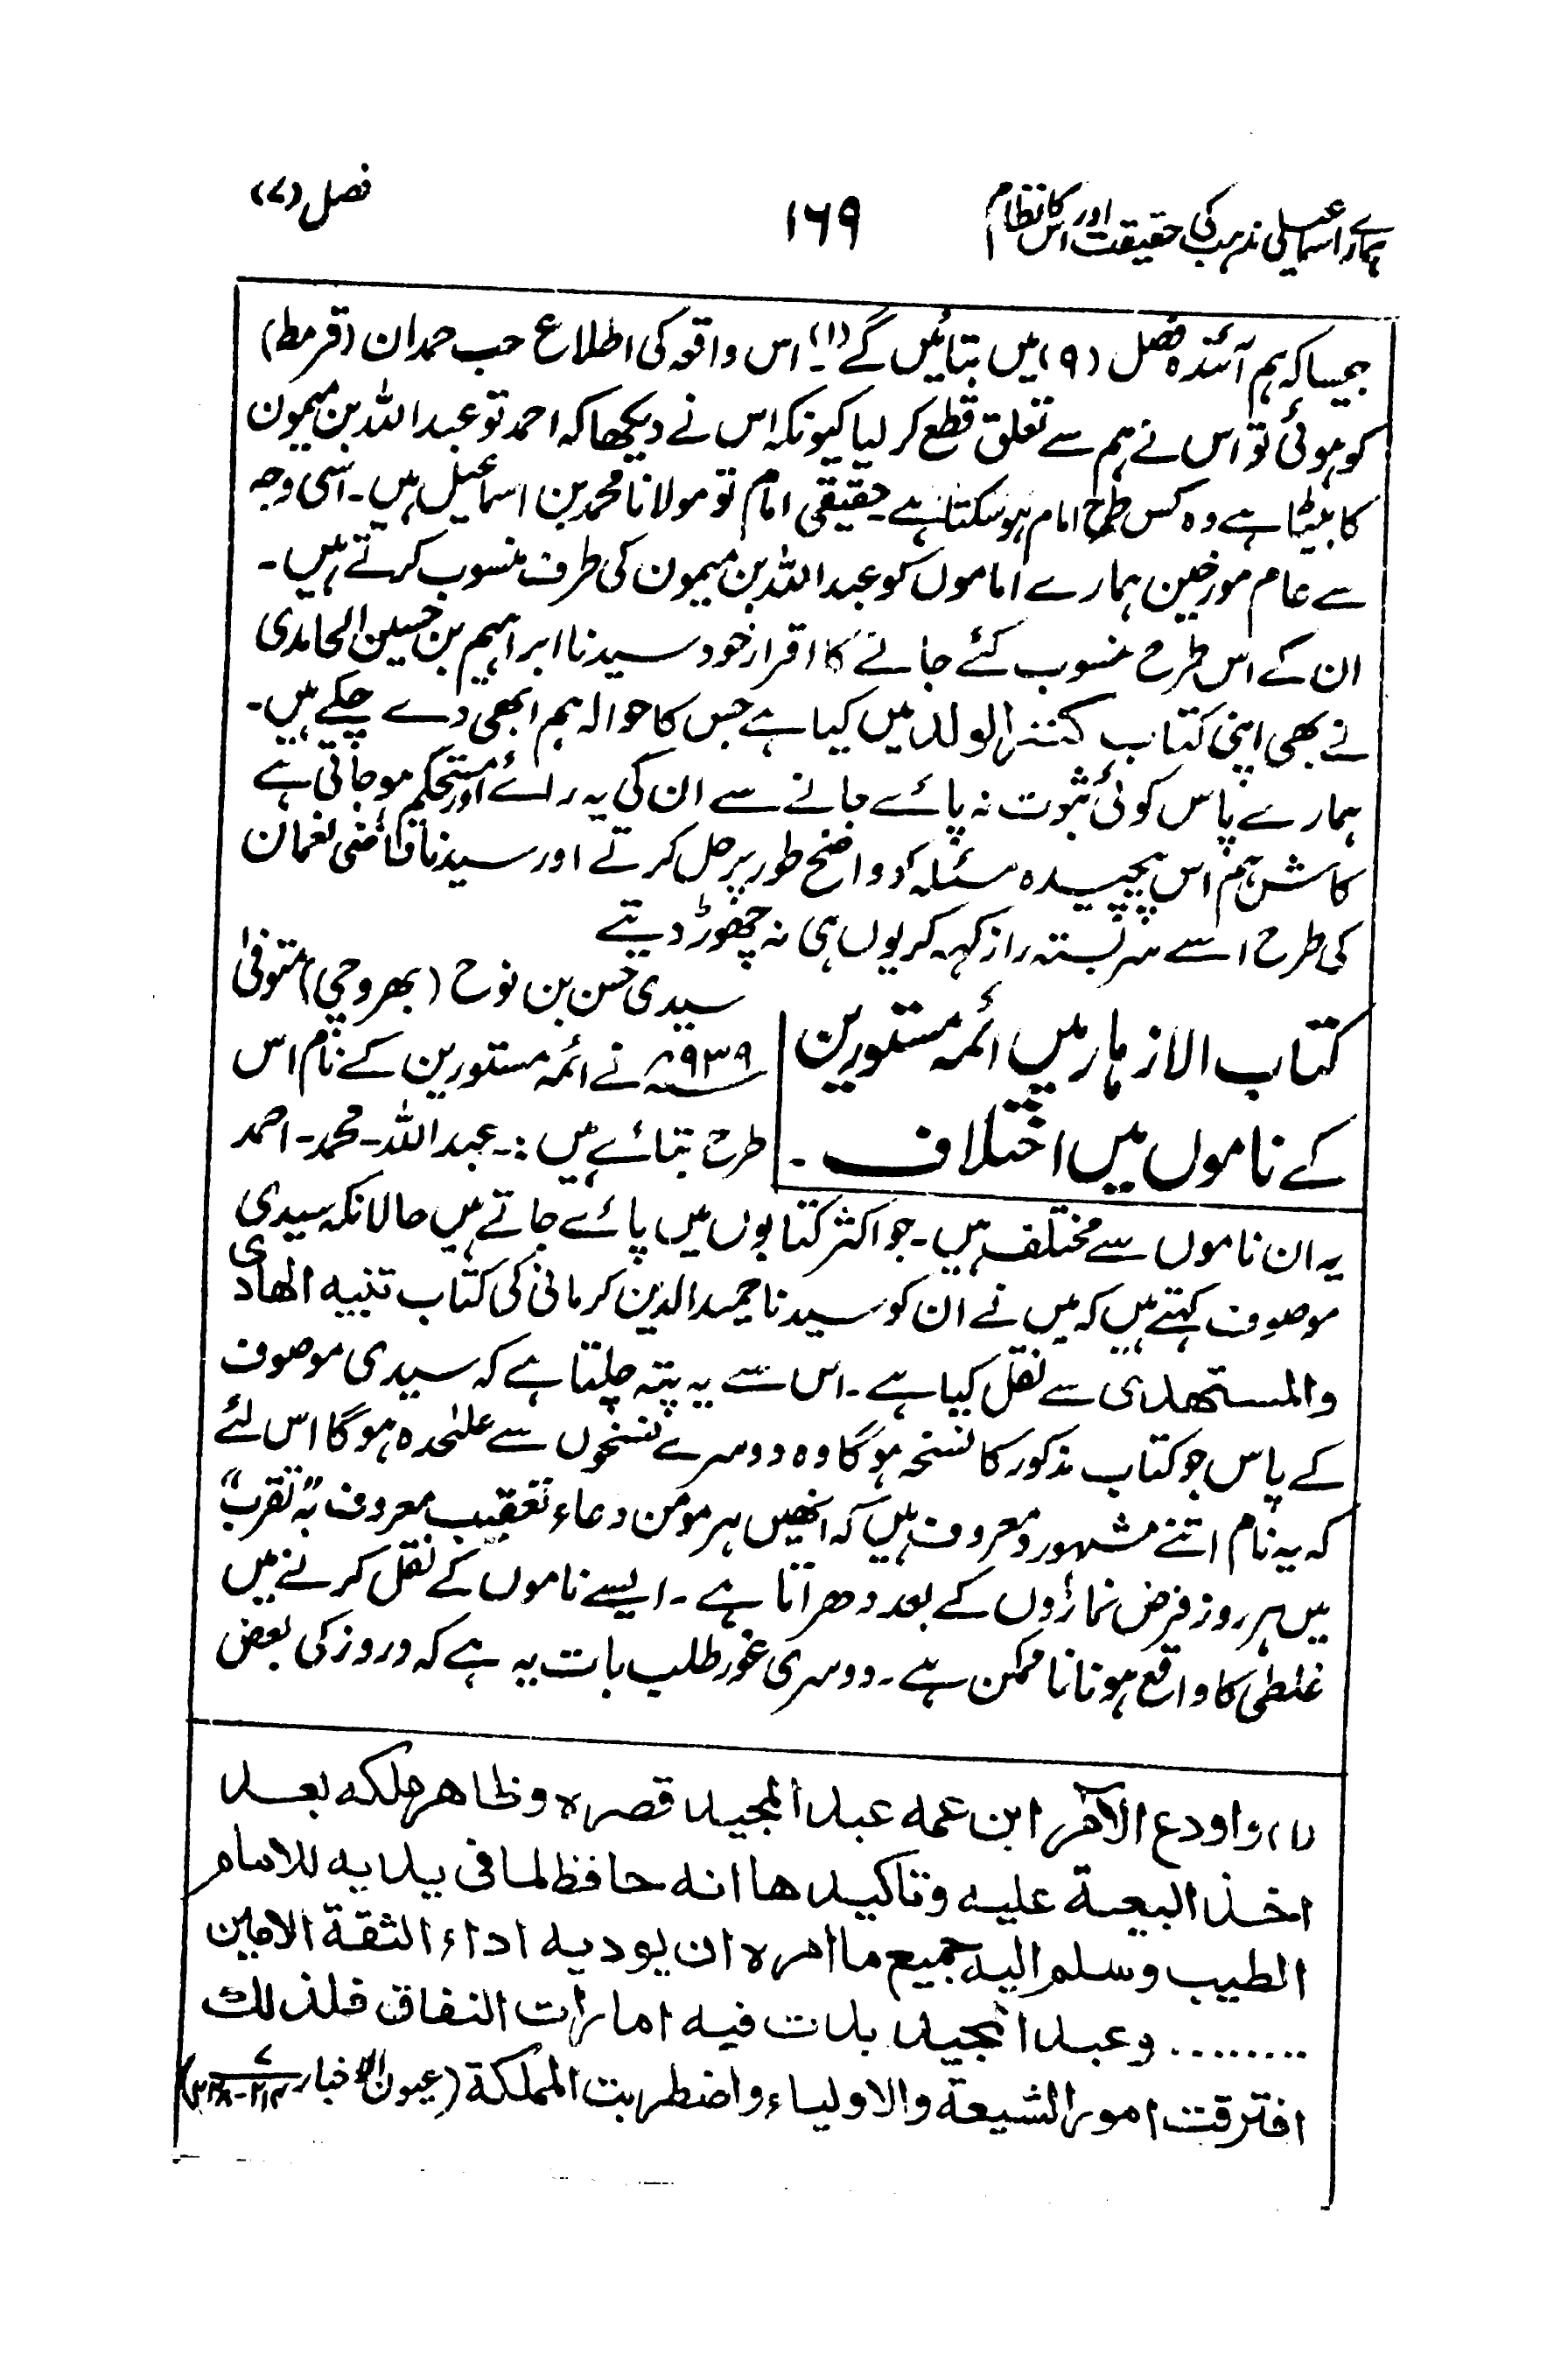 ہمارے اسماعیلی مذہب کی حقیقت اور اس کا نظام
۱۶۹
فصل (۷)
جیسا کہ ہم آئندہ فصل (۹) میں بتائیں گے (۱)۔ اس واقعہ کی اطلاع جب حمدان (قرمط)
کو ہوئی تو اس نے ہم سے تعلق قطع کر لیا کیونکہ اس نے دیکھا کہ احمد تو عبد اللہ بن میمون
کا بیٹا ہے وہ کس طرح امام ہو سکتا ہے۔ حقیقی امام تو مولانا محمد بن اسماعیل ہیں۔ اسی وجہ
سے عام مورخین ہمارے اماموں کو عبد اللہ بن میمون کی طرف منسوب کرتے ہیں۔
ان کے اس طرح منسوب کئے جانے کا اقرار خود سیدنا ابراہیم بن حسین الحامدی
نے بھی اپنی کتاب کنز الولد میں کیا ہے جس کا حوالہ ہم ابھی دے چکے ہیں۔
ہمارے پاس کوئی ثبوت نہ پائے جانے سے ان کی یہ رائے اور مستحکم ہو جاتی ہے
کاش ہم اس پیچیدہ مسئلہ کو واضح طور پر حل کرتے اور سیدنا قاضی نعمان
کی طرح اسے سربستہ راز کہہ کر یوں ہی نہ چھوڑ دیتے
کتاب الازہار میں ائمہ مستورین
کے ناموں میں اختلاف۔
سیدی حسن بن نوح (بھروچی) متوفیٰ
۹۳۹ھ نے ائمہ مستورین کے نام اس
طرح بتائے ہیں :۔ عبد اللہ۔ محمد۔ احمد
یہ ان ناموں سے مختلف ہیں۔ جو اکثر کتابوں میں پائے جاتے ہیں حالانکہ سیدی
موصوف کہتے ہیں کہ میں نے ان کو سیدنا حمید الدین کرمانی کی کتاب تنبیہ الھادی
والمستھدی سے نقل کیا ہے۔ اس سے یہ پتہ چلتا ہے کہ سیدی موصوف
کے پاس جو کتاب مذکور کا نسخہ ہوگا وہ دوسرے نسخوں سے علٰحدہ ہوگا اس لئے
کہ یہ نام اتنے مشہور و معروف ہیں کہ انھیں ہر مومن دعاء تعقیب معروف بہ "تقرب"
میں ہر روز فرض نمازوں کے بعد دھراتا ہے۔ ایسے ناموں کے نقل کرنے میں
غلطی کا واقع ہونا ناممکن ہے۔ دوسری غور طلب بات یہ ہے کہ دروز کی بعض
(۱) واودع الآمر ابن عمه عبد المجيد قصره وظاهر ملكه بعد
اخذ البيعة عليه وتاكيدها انه حافظ لما فى يديه للامام
الطيب وسلم اليه جميع ما امره ان يوديه اداء الثقة الامين
........ وعبد المجيد بدت فيه امارات النفاق فلذلك
افترقت امور الشيعة والاولياء واضطربت المملكة (عيون الاخبار